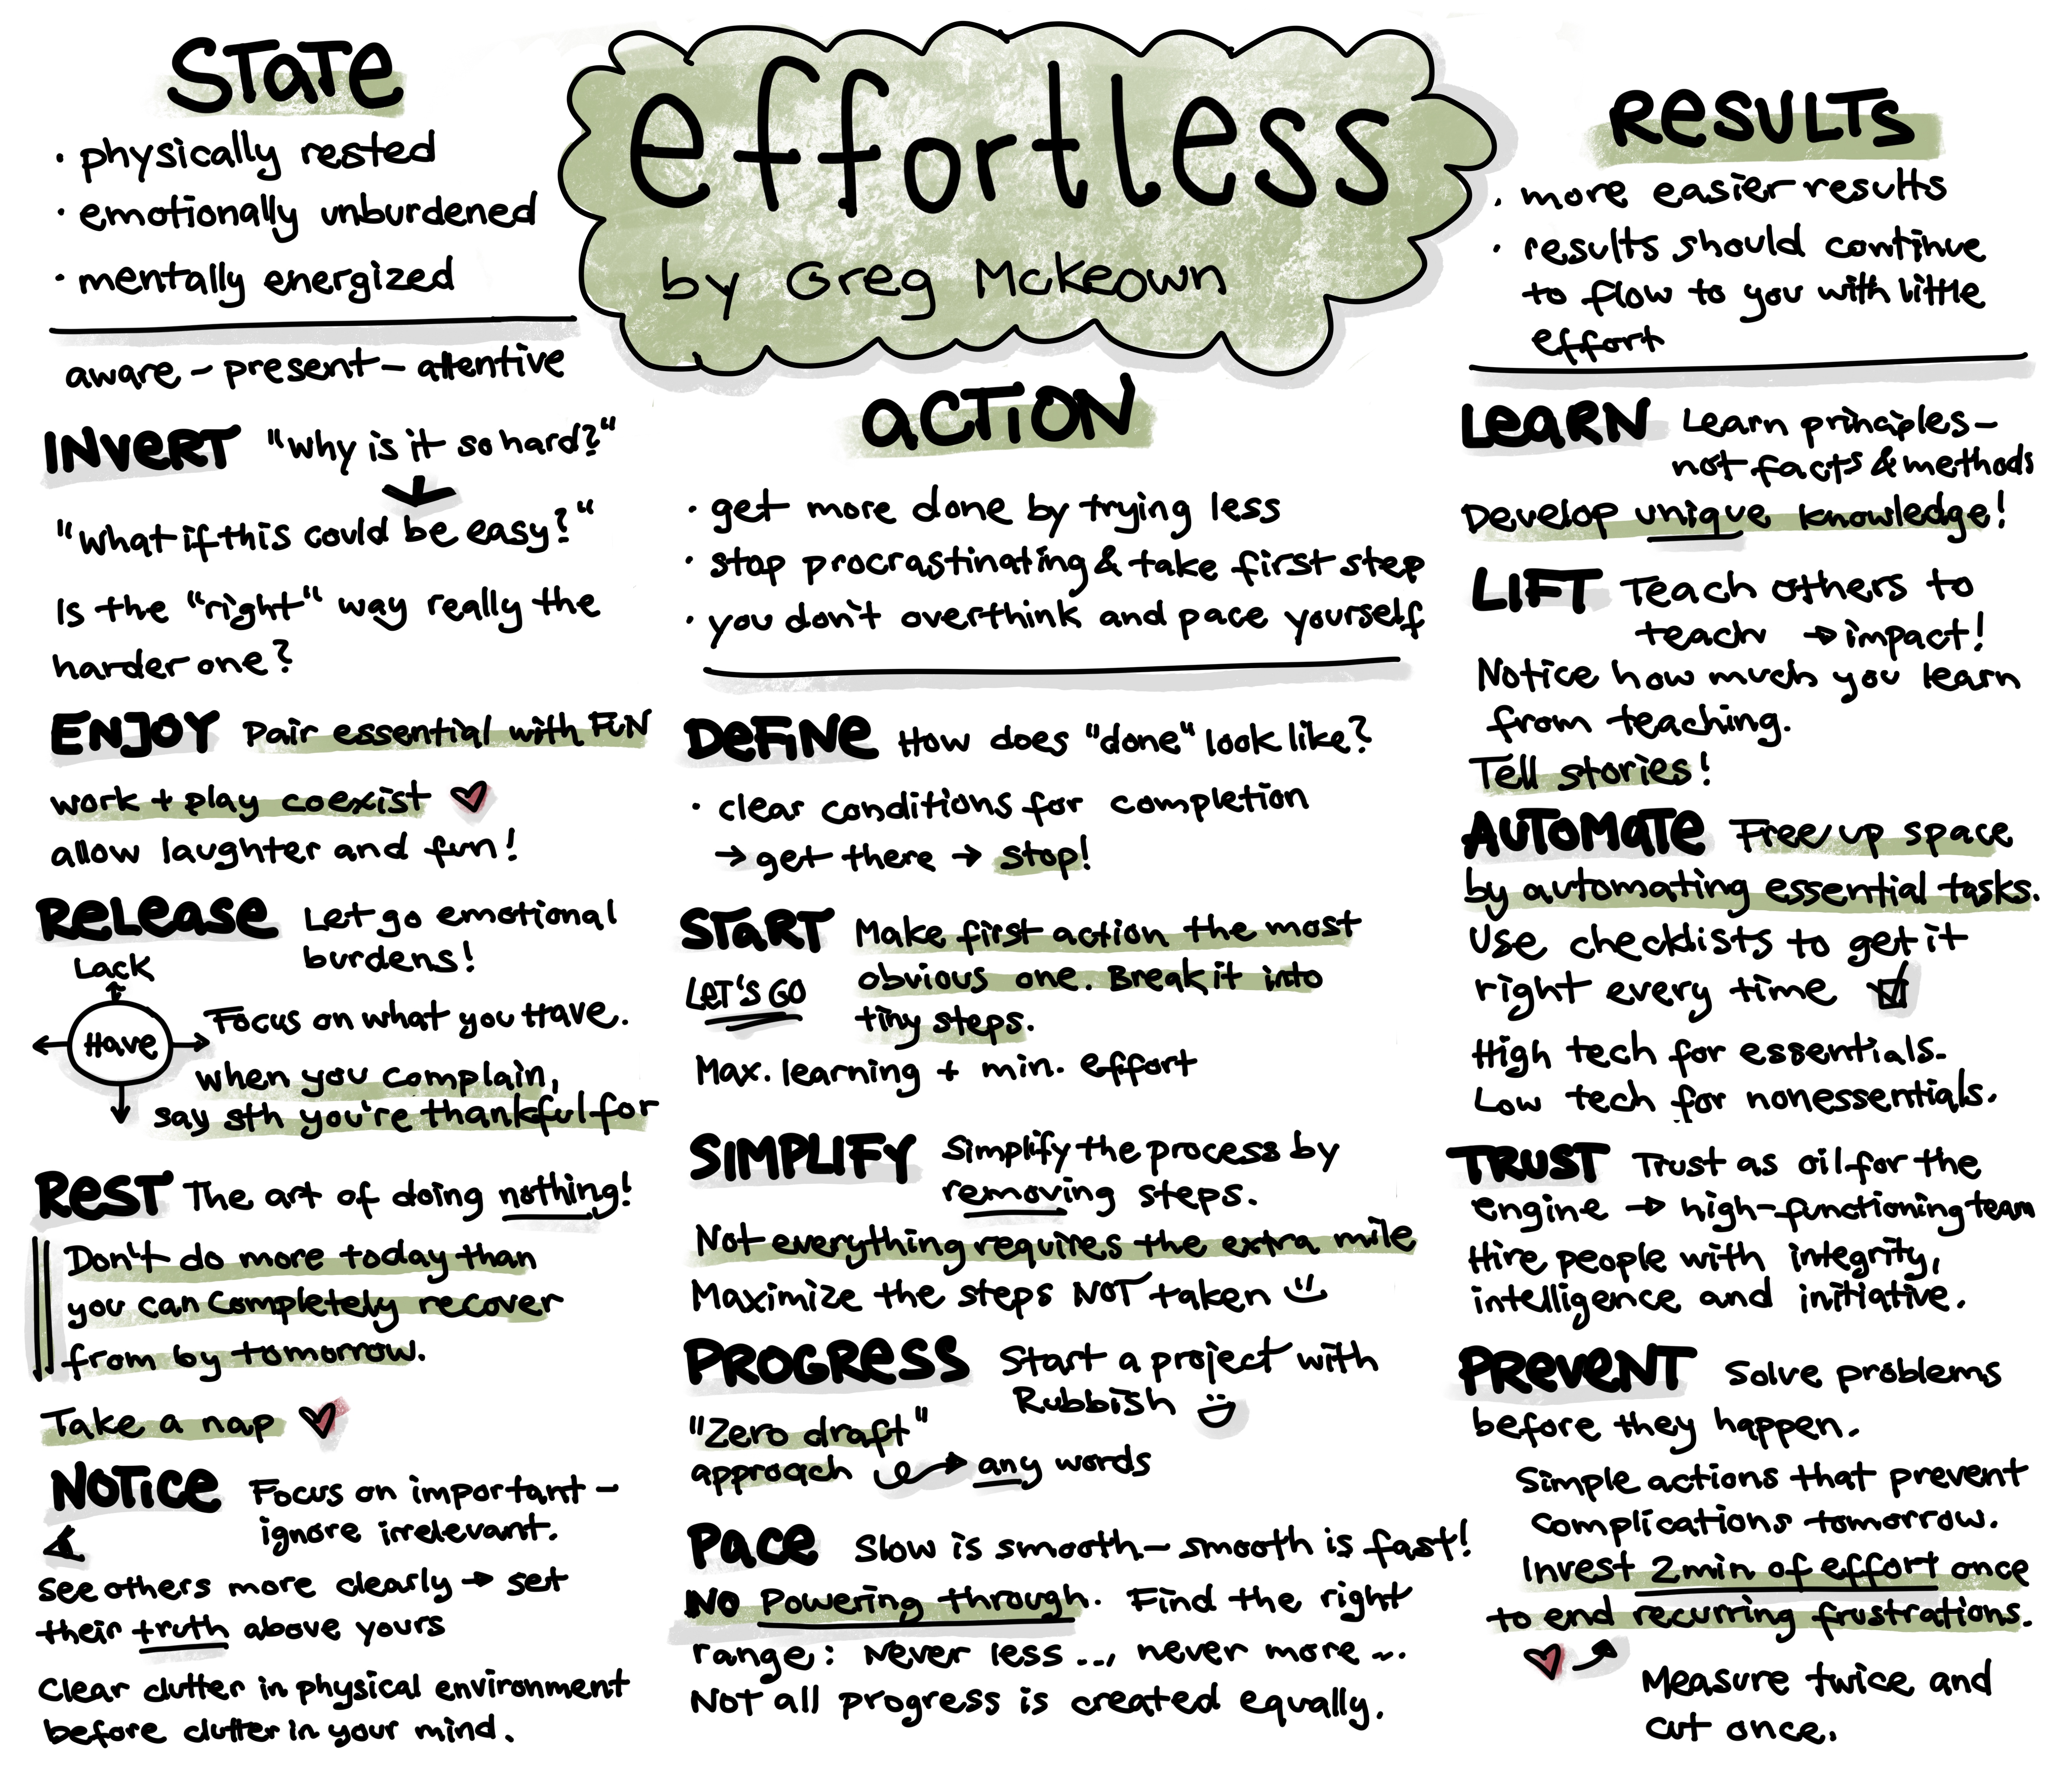 effortless
by Greg McKeown
STATE
· physically rested
· emotionally unburdened
· mentally energized
aware - present - attentive
INVERT "Why is it so hard?"
"What if this could be easy?"
Is the "right" way really the
harder one?
ENJOY Pair essential with FUN
work + play coexist
allow laughter and fun!
RELEASE Let go emotional
burdens!
Lack
Have
Focus on what you Have.
when you complain,
say sth you're thankful for
REST The art of doing nothing!
Don't do more today than
you can completely recover
from by tomorrow.
Take a nap
NOTICE Focus on important -
ignore irrelevant.
see others more clearly → set
their truth above yours
Clear clutter in physical environment
before clutter in your mind.
ACTION
· get more done by trying less
· stop procrastinating & take first step
· you don't overthink and pace yourself
DEFINE How does "done" look like?
· clear conditions for completion
→ get there → stop!
START Make first action the most
obvious one. Break it into
tiny steps.
LET'S GO
Max. learning + min. effort
SIMPLIFY Simplify the process by
removing steps.
Not everything requires the extra mile
Maximize the steps NOT taken
PROGRESS Start a project with
Rubbish
"Zero draft"
approach → any words
PACE Slow is smooth - smooth is fast!
NO Powering through. Find the right
range: Never less ..., never more ...
Not all progress is created equally.
RESULTS
· more easier results
· results should continue
to flow to you with little
effort
LEARN Learn principles -
not facts & methods
Develop unique knowledge!
LIFT Teach others to
teach → impact!
Notice how much you learn
from teaching.
Tell stories!
AUTOMATE Free up space
by automating essential tasks.
Use checklists to get it
right every time
High tech for essentials.
Low tech for nonessentials.
TRUST Trust as oil for the
engine → high-functioning team
Hire people with integrity,
intelligence and initiative.
PREVENT Solve problems
before they happen.
Simple actions that prevent
complications tomorrow.
Invest 2 min of effort once
to end recurring frustrations.
Measure twice and
cut once.